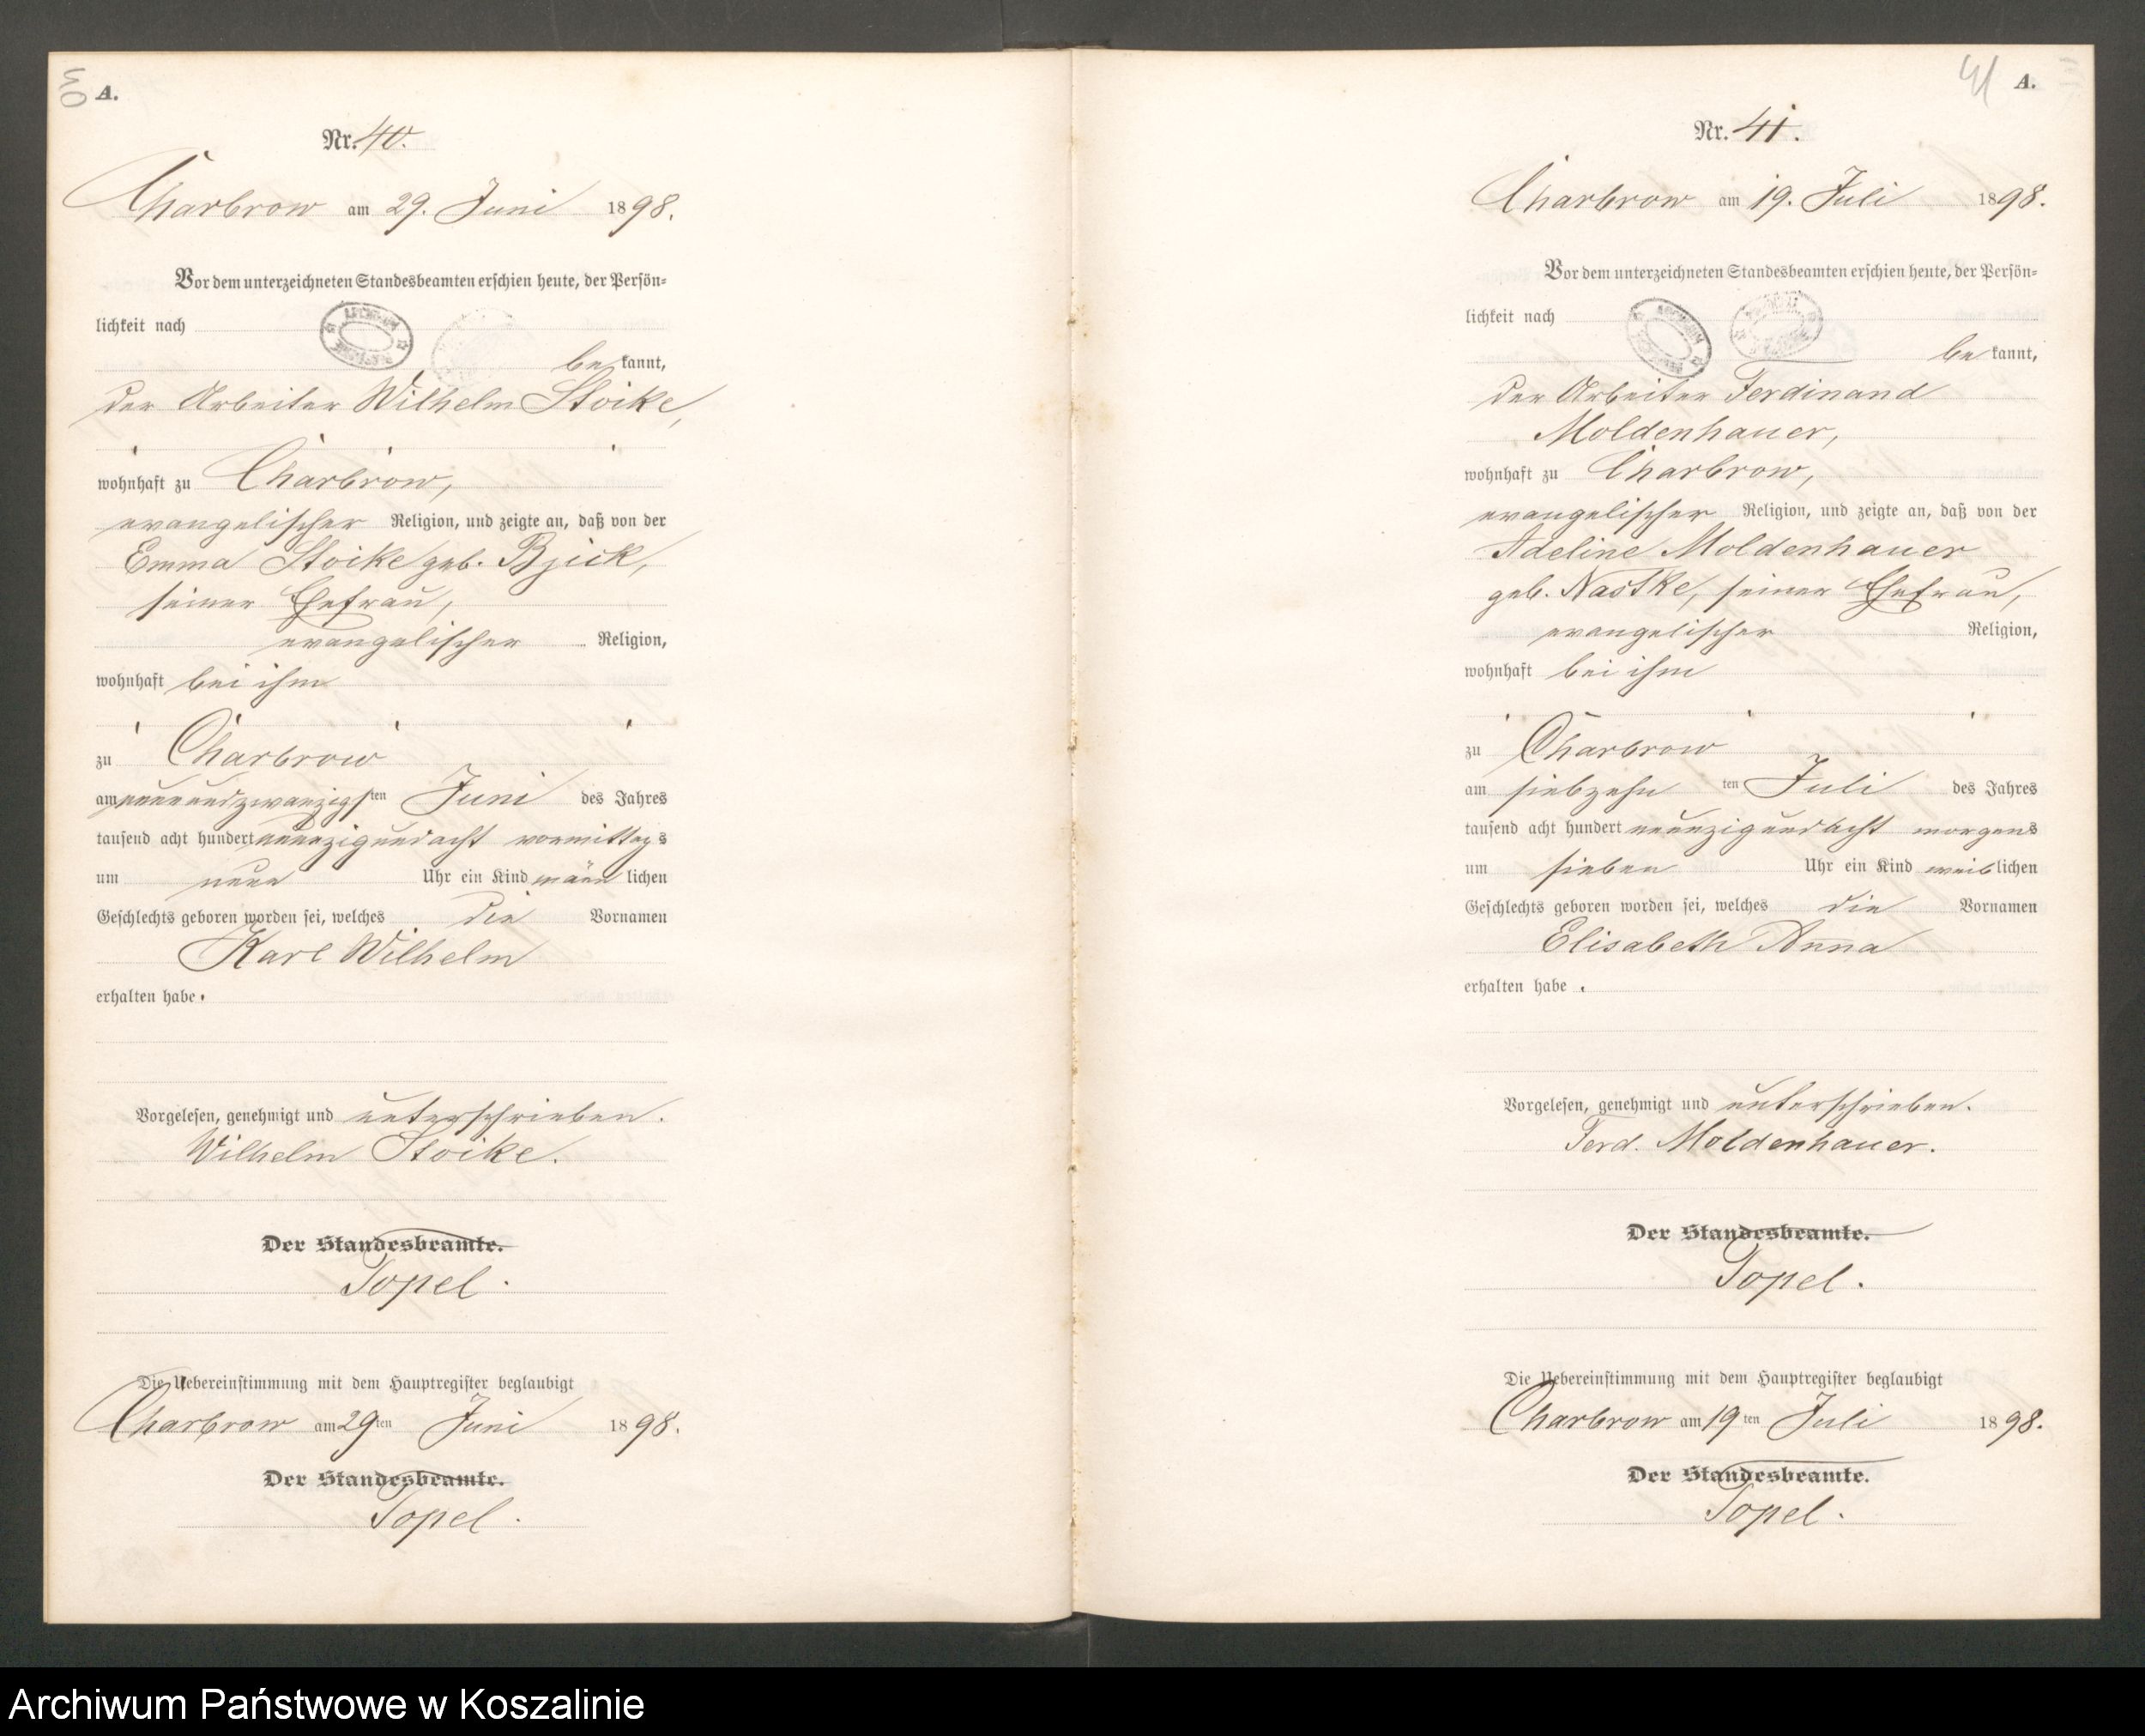 A.
Nr. 40.
Charbrow am 29. Juni 1898.
Vor dem unterzeichneten Standesbeamten erschien heute, der Persön-
lichkeit nach
be kannt,
der Arbeiter Wilhelm Stoike,
wohnhaft zu Charbrow,
evangelischer Religion, und zeigte an, daß von der
Emma Stoike geb. Bjick,
seiner Ehefrau,
evangelischer Religion,
wohnhaft bei ihm
zu Charbrow
am neunundzwanzigsten Juni des Jahres
tausend acht hundert neunzigundacht vormittags
um neun Uhr ein Kind männlichen
Geschlechts geboren worden sei, welches die Vornamen
Karl Wilhelm
erhalten habe.
Vorgelesen, genehmigt und unterschrieben.
Wilhelm Stoike.
Der Standesbeamte.
Topel.
Die Uebereinstimmung mit dem Hauptregister beglaubigt
Charbrow am 29ten Juni 1898.
Der Standesbeamte.
Topel.
41 A.
Nr. 41.
Charbrow am 19. Juli 1898.
Vor dem unterzeichneten Standesbeamten erschien heute, der Persön-
lichkeit nach
be kannt,
der Arbeiter Ferdinand
Moldenhauer,
wohnhaft zu Charbrow,
evangelischer Religion, und zeigte an, daß von der
Adeline Moldenhauer
geb. Nastke, seiner Ehefrau,
evangelischer Religion,
wohnhaft bei ihm
zu Charbrow
am siebzehn ten Juli des Jahres
tausend acht hundert neunzigundacht morgens
um sieben Uhr ein Kind weiblichen
Geschlechts geboren worden sei, welches die Vornamen
Elisabeth Anna
erhalten habe.
Vorgelesen, genehmigt und unterschrieben.
Ferd. Moldenhauer.
Der Standesbeamte.
Topel.
Die Uebereinstimmung mit dem Hauptregister beglaubigt
Charbrow am 19ten Juli 1898.
Der Standesbeamte.
Topel.
Archiwum Państwowe w Koszalinie